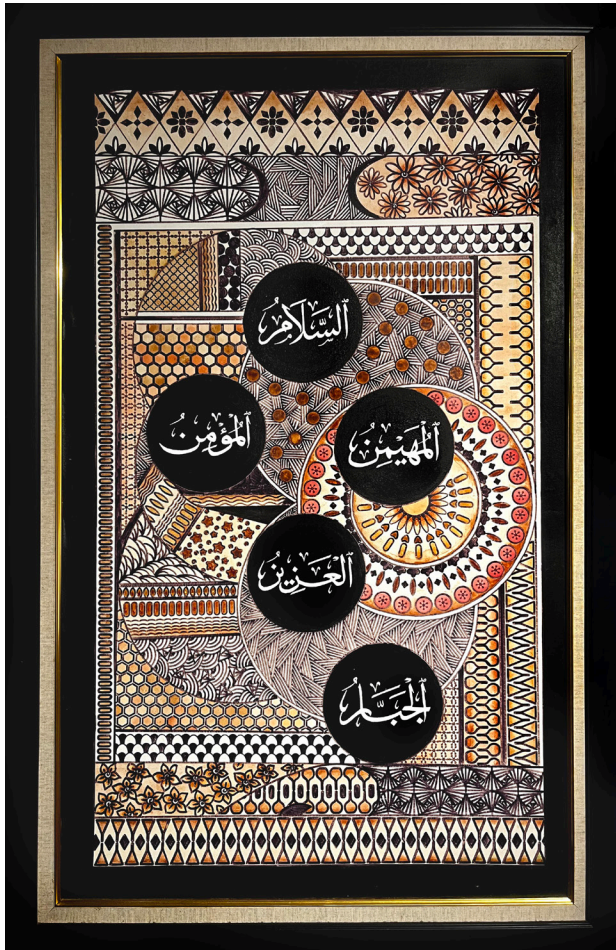 ٱلسَّلَامُ
ٱلْمُؤْمِنُ
ٱلْمُهَيْمِنُ
ٱلْعَزِيزُ
ٱلْجَبَّارُ